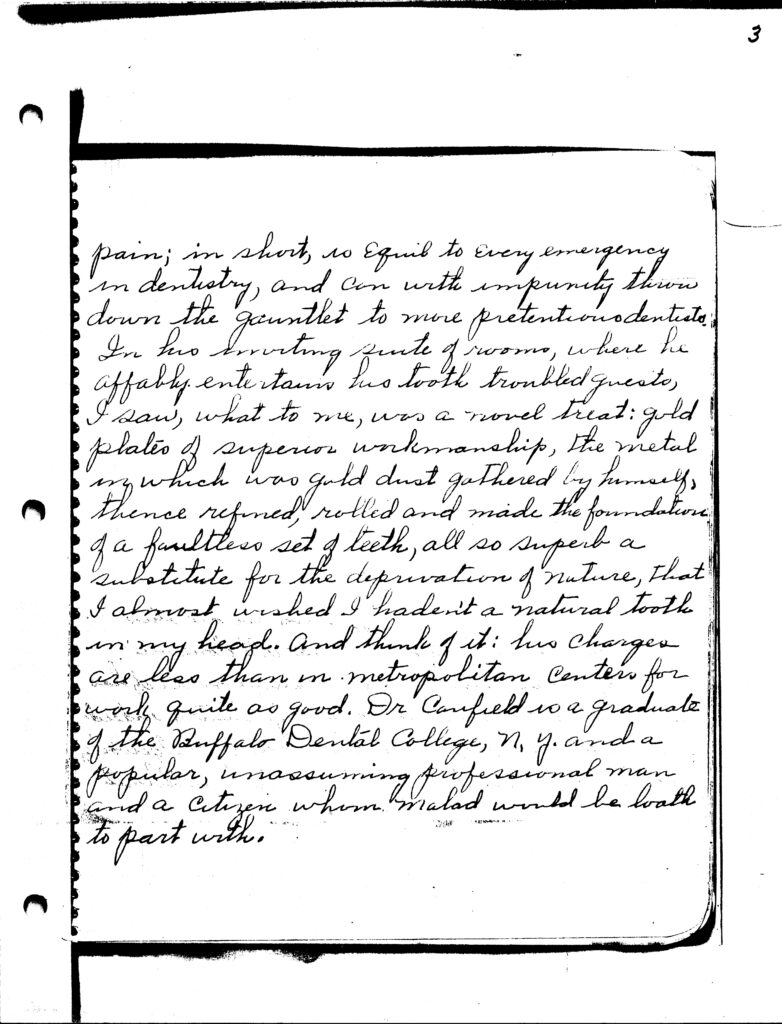 3
pain; in short, is equil to every emergency
in dentistry, and can with impunity throw
down the gauntlet to more pretentious dentists.
In his inviting suite of rooms, where he
affably entertains his tooth troubled guests,
I saw, what to me, was a novel treat: gold
plates of superior workmanship, the metal
in which was gold dust gathered by himself,
thence refined, rolled and made the foundation
of a faultless set of teeth, all so superb a
substitute for the deprivation of nature, that
I almost wished I hadent a natural tooth
in my head. And think of it: his charges
are less than in metropolitan centers for
work quite as good. Dr Canfield is a graduate
of the Buffalo Dental College, N, Y. and a
popular, unassuming professional man
and a citizen whom Malad would be loath
to part with.